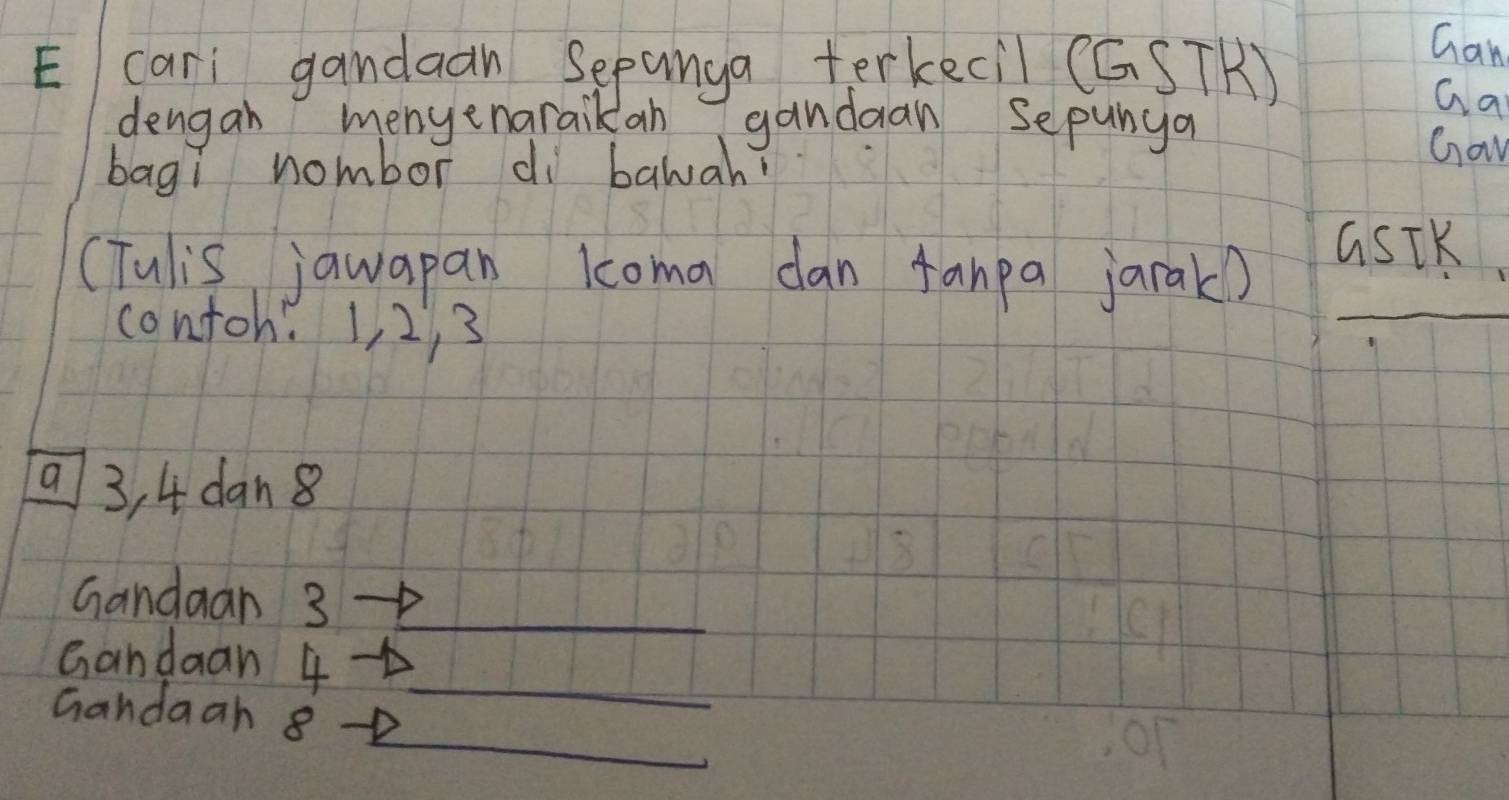 E cari gandaan sepunya terkecil (GSTK)
dengan menyenaraikan gandaan sepunya
bagi nombor di bawah:
(Tulis jawapan koma dan tanpa jarak)
contoh: 1,2,3
a 3,4 dan 8
Gandaan 3 →
Gandaan 4 →
Gandaan 8 →
Gan
Ga
Gan
GSTK